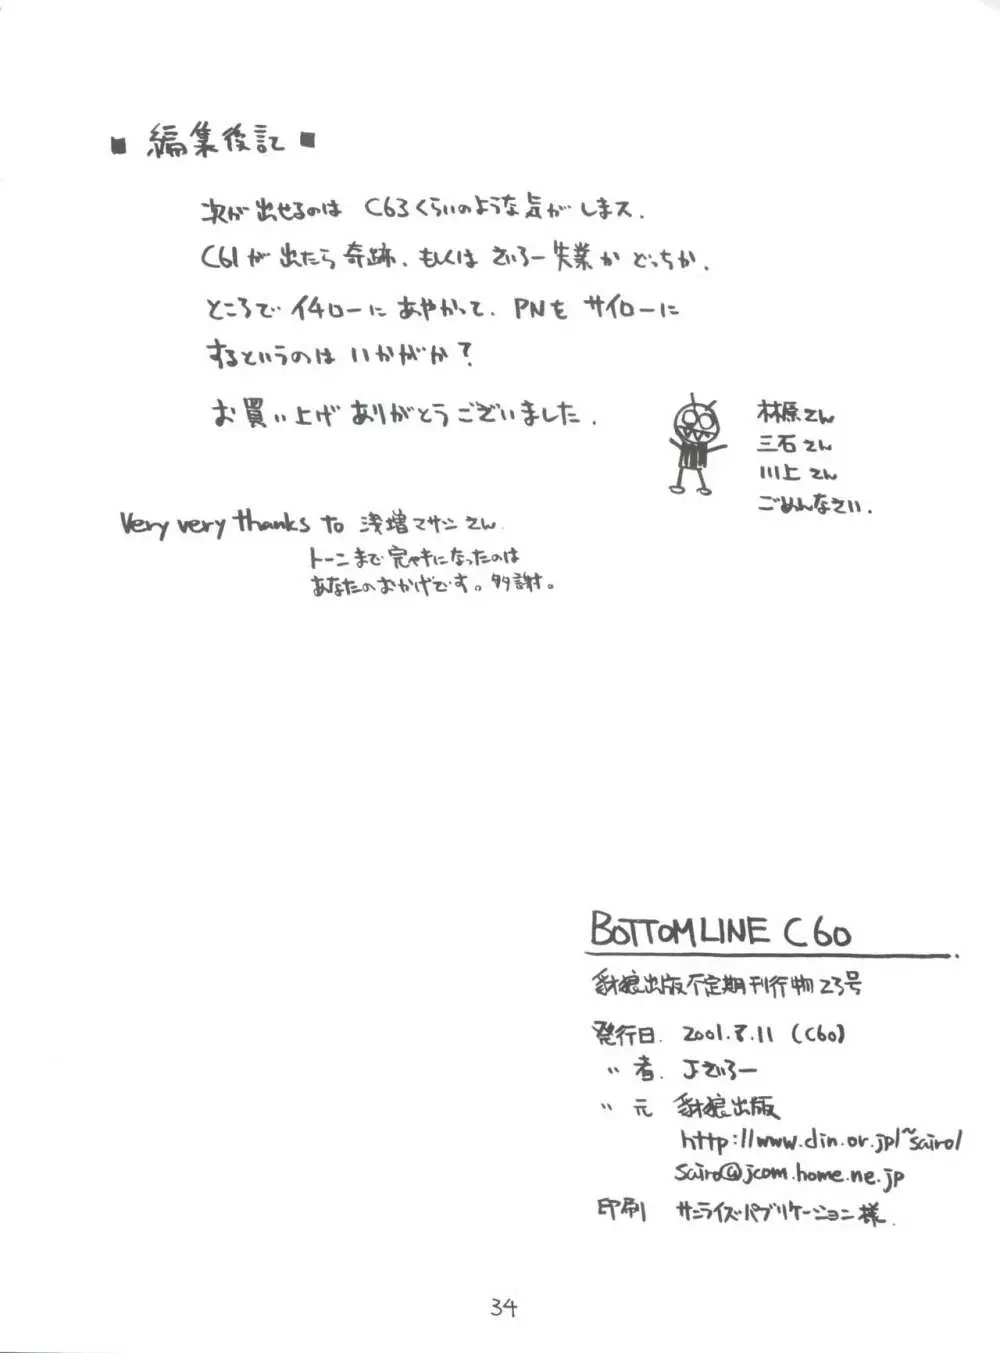 ■ 編集後記 ■
次が出せるのは C63くらいのような気がしまス.
C61が出たら奇跡、もしくは さいろー失業か どっちか.
ところで イチローに あやかって、PNを サイローに
するというのは いかがか?
お買い上げ ありがとうございました.
林原さん
三石さん
川上さん
ごめんなさい.
Very very thanks to 浅増マサシさん.
トーンまで完ペキになったのは
あなたのおかげです。多謝。
BOTTOM LINE C60
豺狼出版不定期刊行物23号
発行日. 2001.8.11 (C60)
〃 者. Jさいろー
〃 元 豺狼出版
http://www.din.or.jp/~sairo/
sairo@jcom.home.ne.jp
印刷 サンライズパブリケーション様.
34